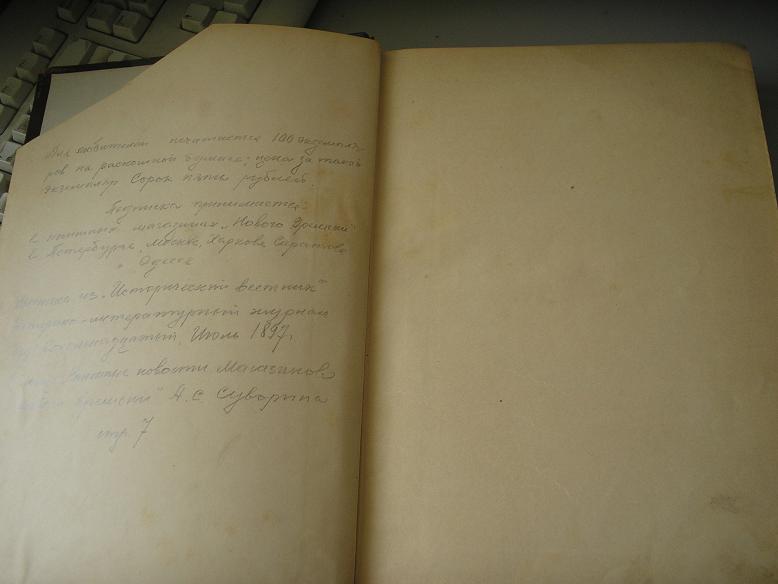 Для любителей печатается 100 экземпля-
ров на роскошной бумаге; цена за такой
экземпляр Сорок пять рублей.
Подписка принимается:
в книжных магазинах „Нового Времени"
в Петербурге, Москве, Харькове, Саратове
и Одессе
из „Исторический вестник"
историко-литературный журнал
год восемнадцатый, Июль 1897 г.
Книжные новости Магазинов
Времени" А. С. Суворина
стр. 7